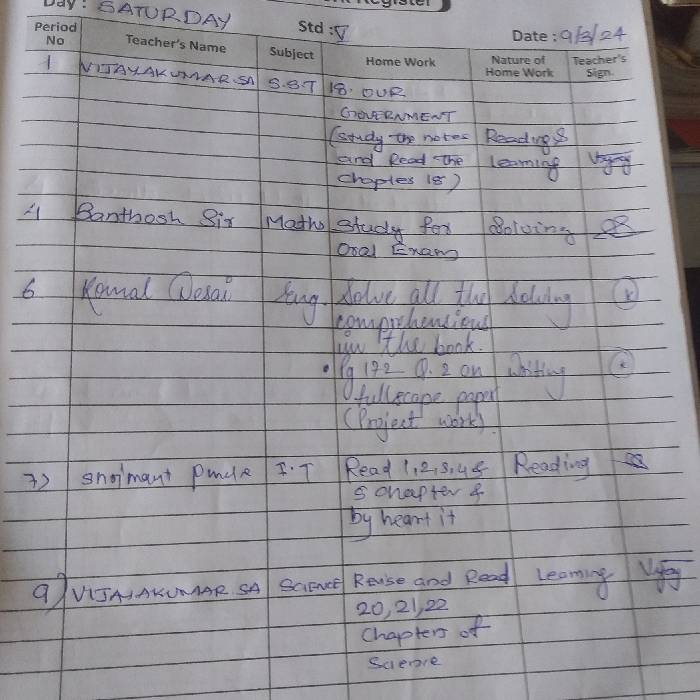 Day : SATURDAY Std : V Date : 9/3/24
Period No Teacher's Name Subject Home Work Nature of Home Work Teacher's Sign.
1 VIJAYAKUMAR.SA S.S.T 18. OUR
GOVERNMENT
(study the notes Reading &
and Read the Learning
Chapter 18)
4 Santhosh Sir Maths Study for Solving
Oral Exam
6 Komal Desai Eng. Solve all the Solving
comprehensions
in the book.
• Pg 172 Q.2 on Writing
fullscape paper
(Project work).
7) I.T Read 1,2,3,4 & Reading
5 chapter &
by heart it
9) VIJAYAKUMAR SA SCIENCE Revise and Read Learning
20,21,22
Chapters of
Science